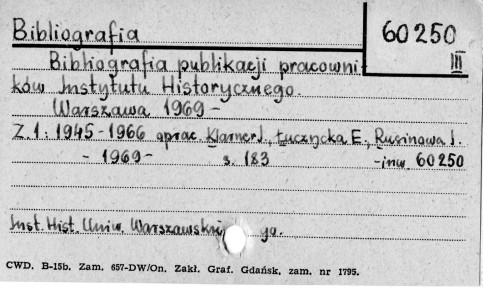 Bibliografia
60250
III
Bibliografia publikacji pracowni-
ków Instytutu Historycznego.
Warszawa 1969 -
Z. 1: 1945-1966 oprac. Klarner J., Łuczycka E., Rusinowa I.
- 1969 - s. 183 - inw. 60250
Inst. Hist. Uniw. Warszawskie go.
CWD. B-15b. Zam. 657-DW/On. Zakł. Graf. Gdańsk, zam. nr 1795.